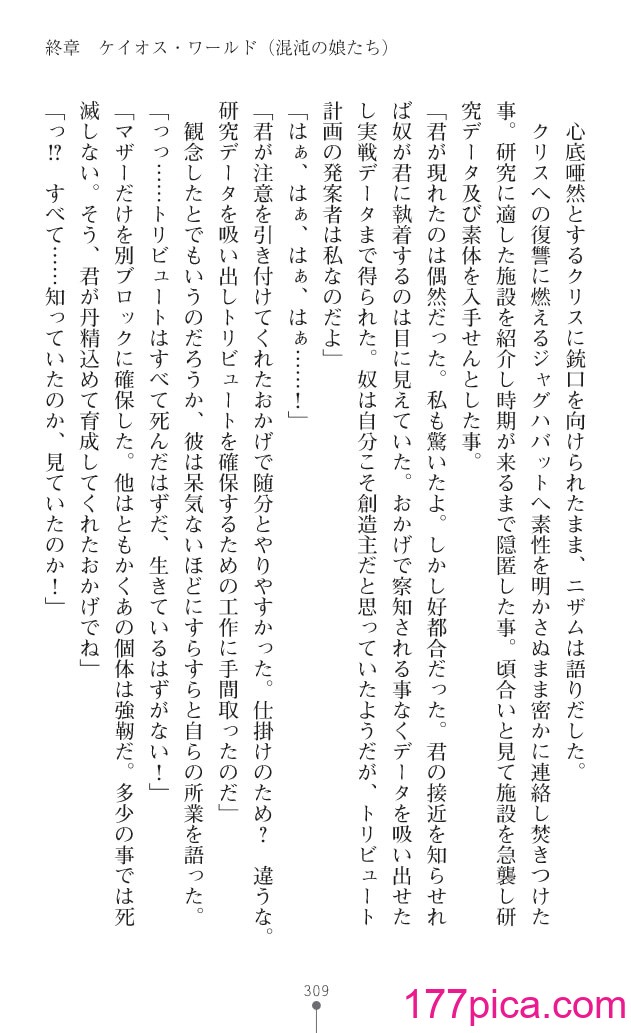 終章　ケイオス・ワールド（混沌の娘たち）
　心底唖然とするクリスに銃口を向けられたまま、ニザムは語りだした。
　クリスへの復讐に燃えるジャグハバットへ素性を明かさぬまま密かに連絡し焚きつけた
事。研究に適した施設を紹介し時期が来るまで隠匿した事。頃合いと見て施設を急襲し研
究データ及び素体を入手せんとした事。
「君が現れたのは偶然だった。私も驚いたよ。しかし好都合だった。君の接近を知らせれ
ば奴が君に執着するのは目に見えていた。おかげで察知される事なくデータを吸い出せた
し実戦データまで得られた。奴は自分こそ創造主だと思っていたようだが、トリビュート
計画の発案者は私なのだよ」
「はぁ、はぁ、はぁ、はぁ……！」
「君が注意を引き付けてくれたおかげで随分とやりやすかった。仕掛けのため？　違うな。
研究データを吸い出しトリビュートを確保するための工作に手間取ったのだ」
　観念したとでもいうのだろうか、彼は呆気ないほどにすらすらと自らの所業を語った。
「っっ……トリビュートはすべて死んだはずだ、生きているはずがない！」
「マザーだけを別ブロックに確保した。他はともかくあの個体は強靭だ。多少の事では死
滅しない。そう、君が丹精込めて育成してくれたおかげでね」
「っ!?　すべて……知っていたのか、見ていたのか！」
309
177pica.com